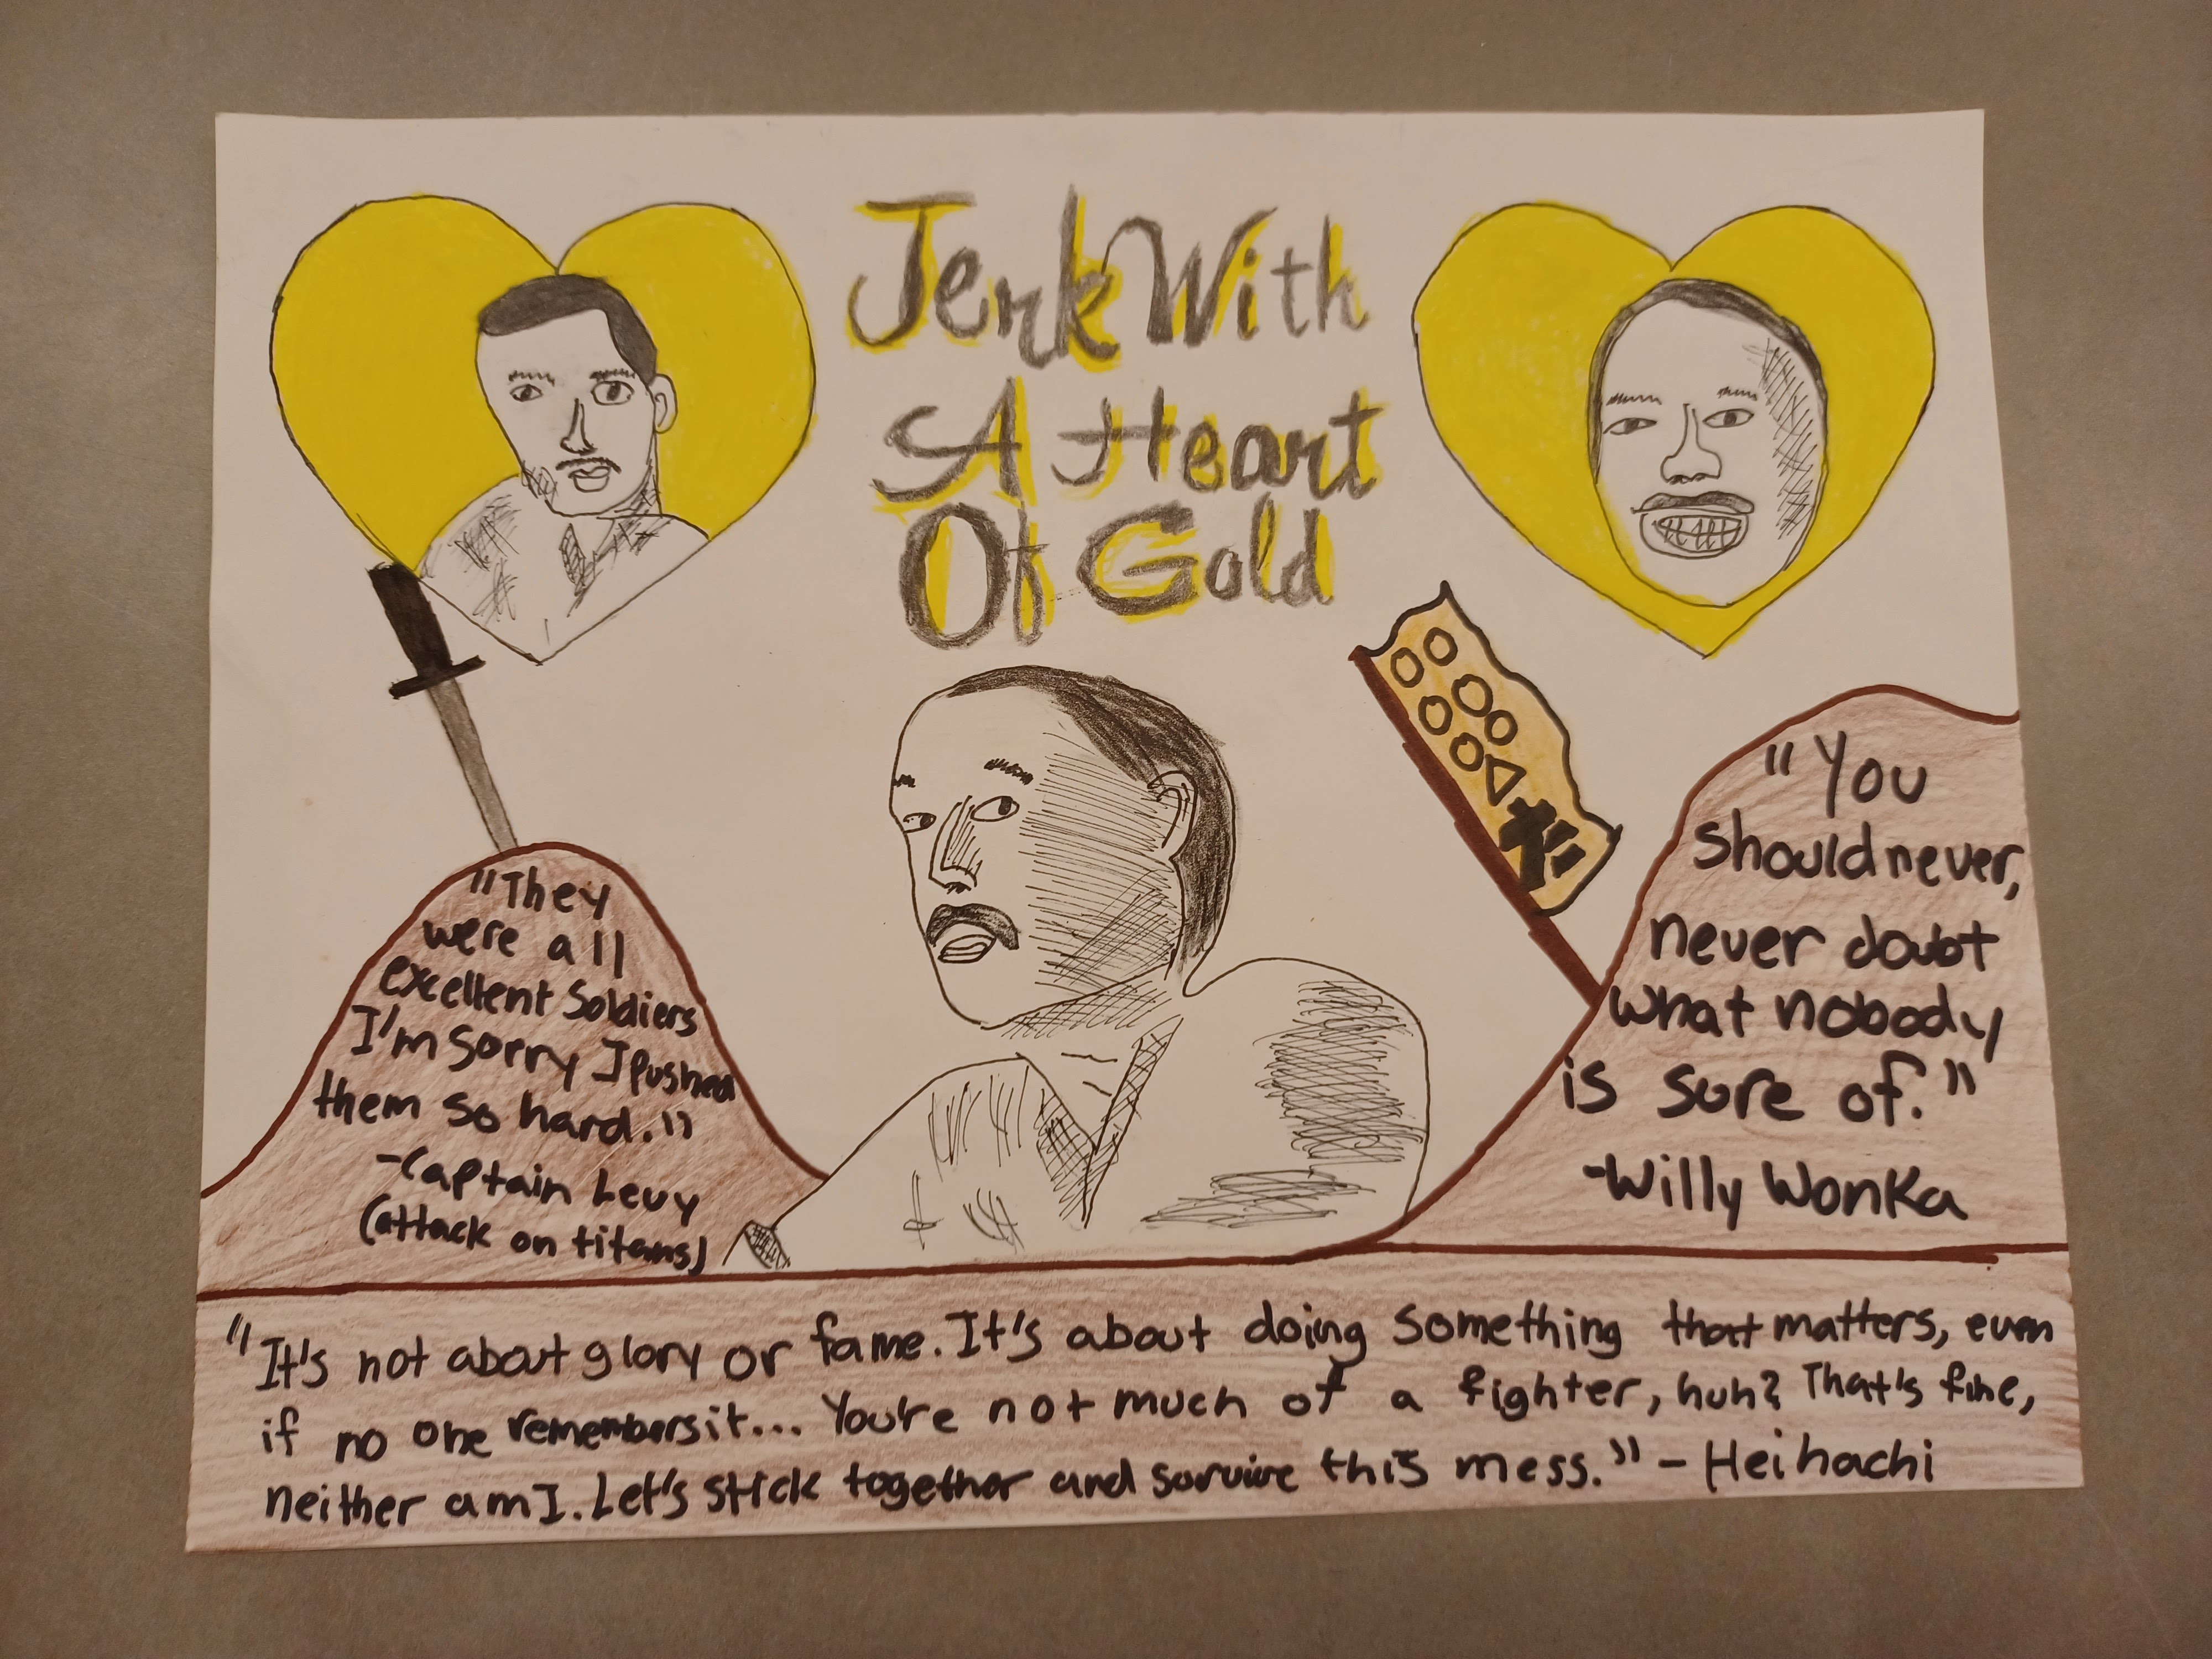 Jerk With
A Heart
Of Gold
"They
were all
excellent Soldiers
I'm sorry I pushed
them so hard."
-Captain Levy
(attack on titans)
"You
should never,
never doubt
what nobody
is sure of."
-Willy Wonka
"It's not about glory or fame. It's about doing something that matters, even
if no one remembers it... You're not much of a fighter, huh? That's fine,
neither am I. Let's stick together and survive this mess." - Heihachi